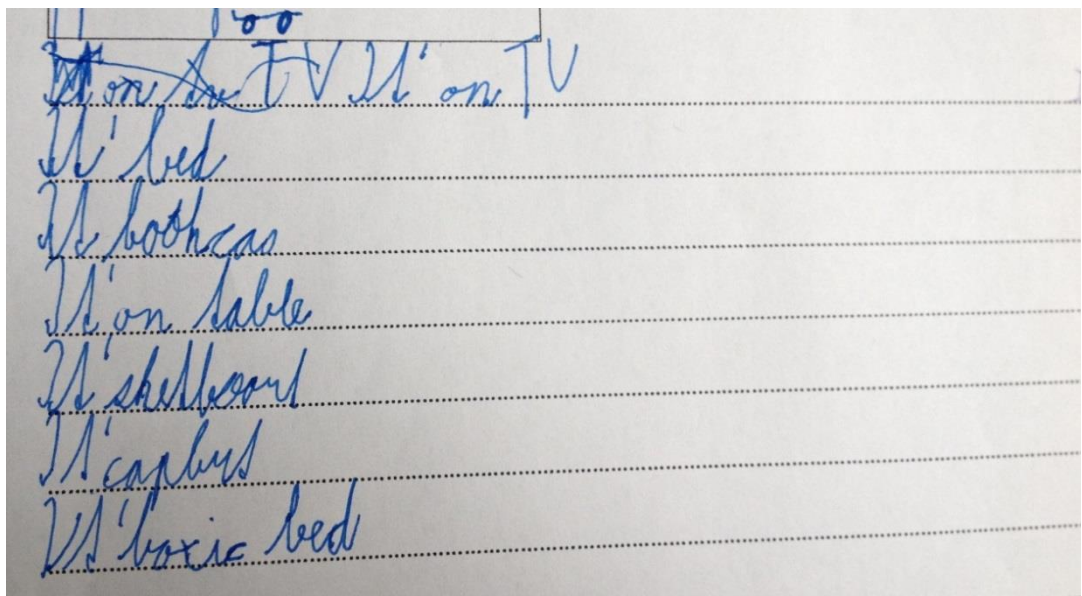 It on the TV It' on TV
It' bed
It bothcas
It' on table
It' skelboard
It' capbut
It' boxic bed